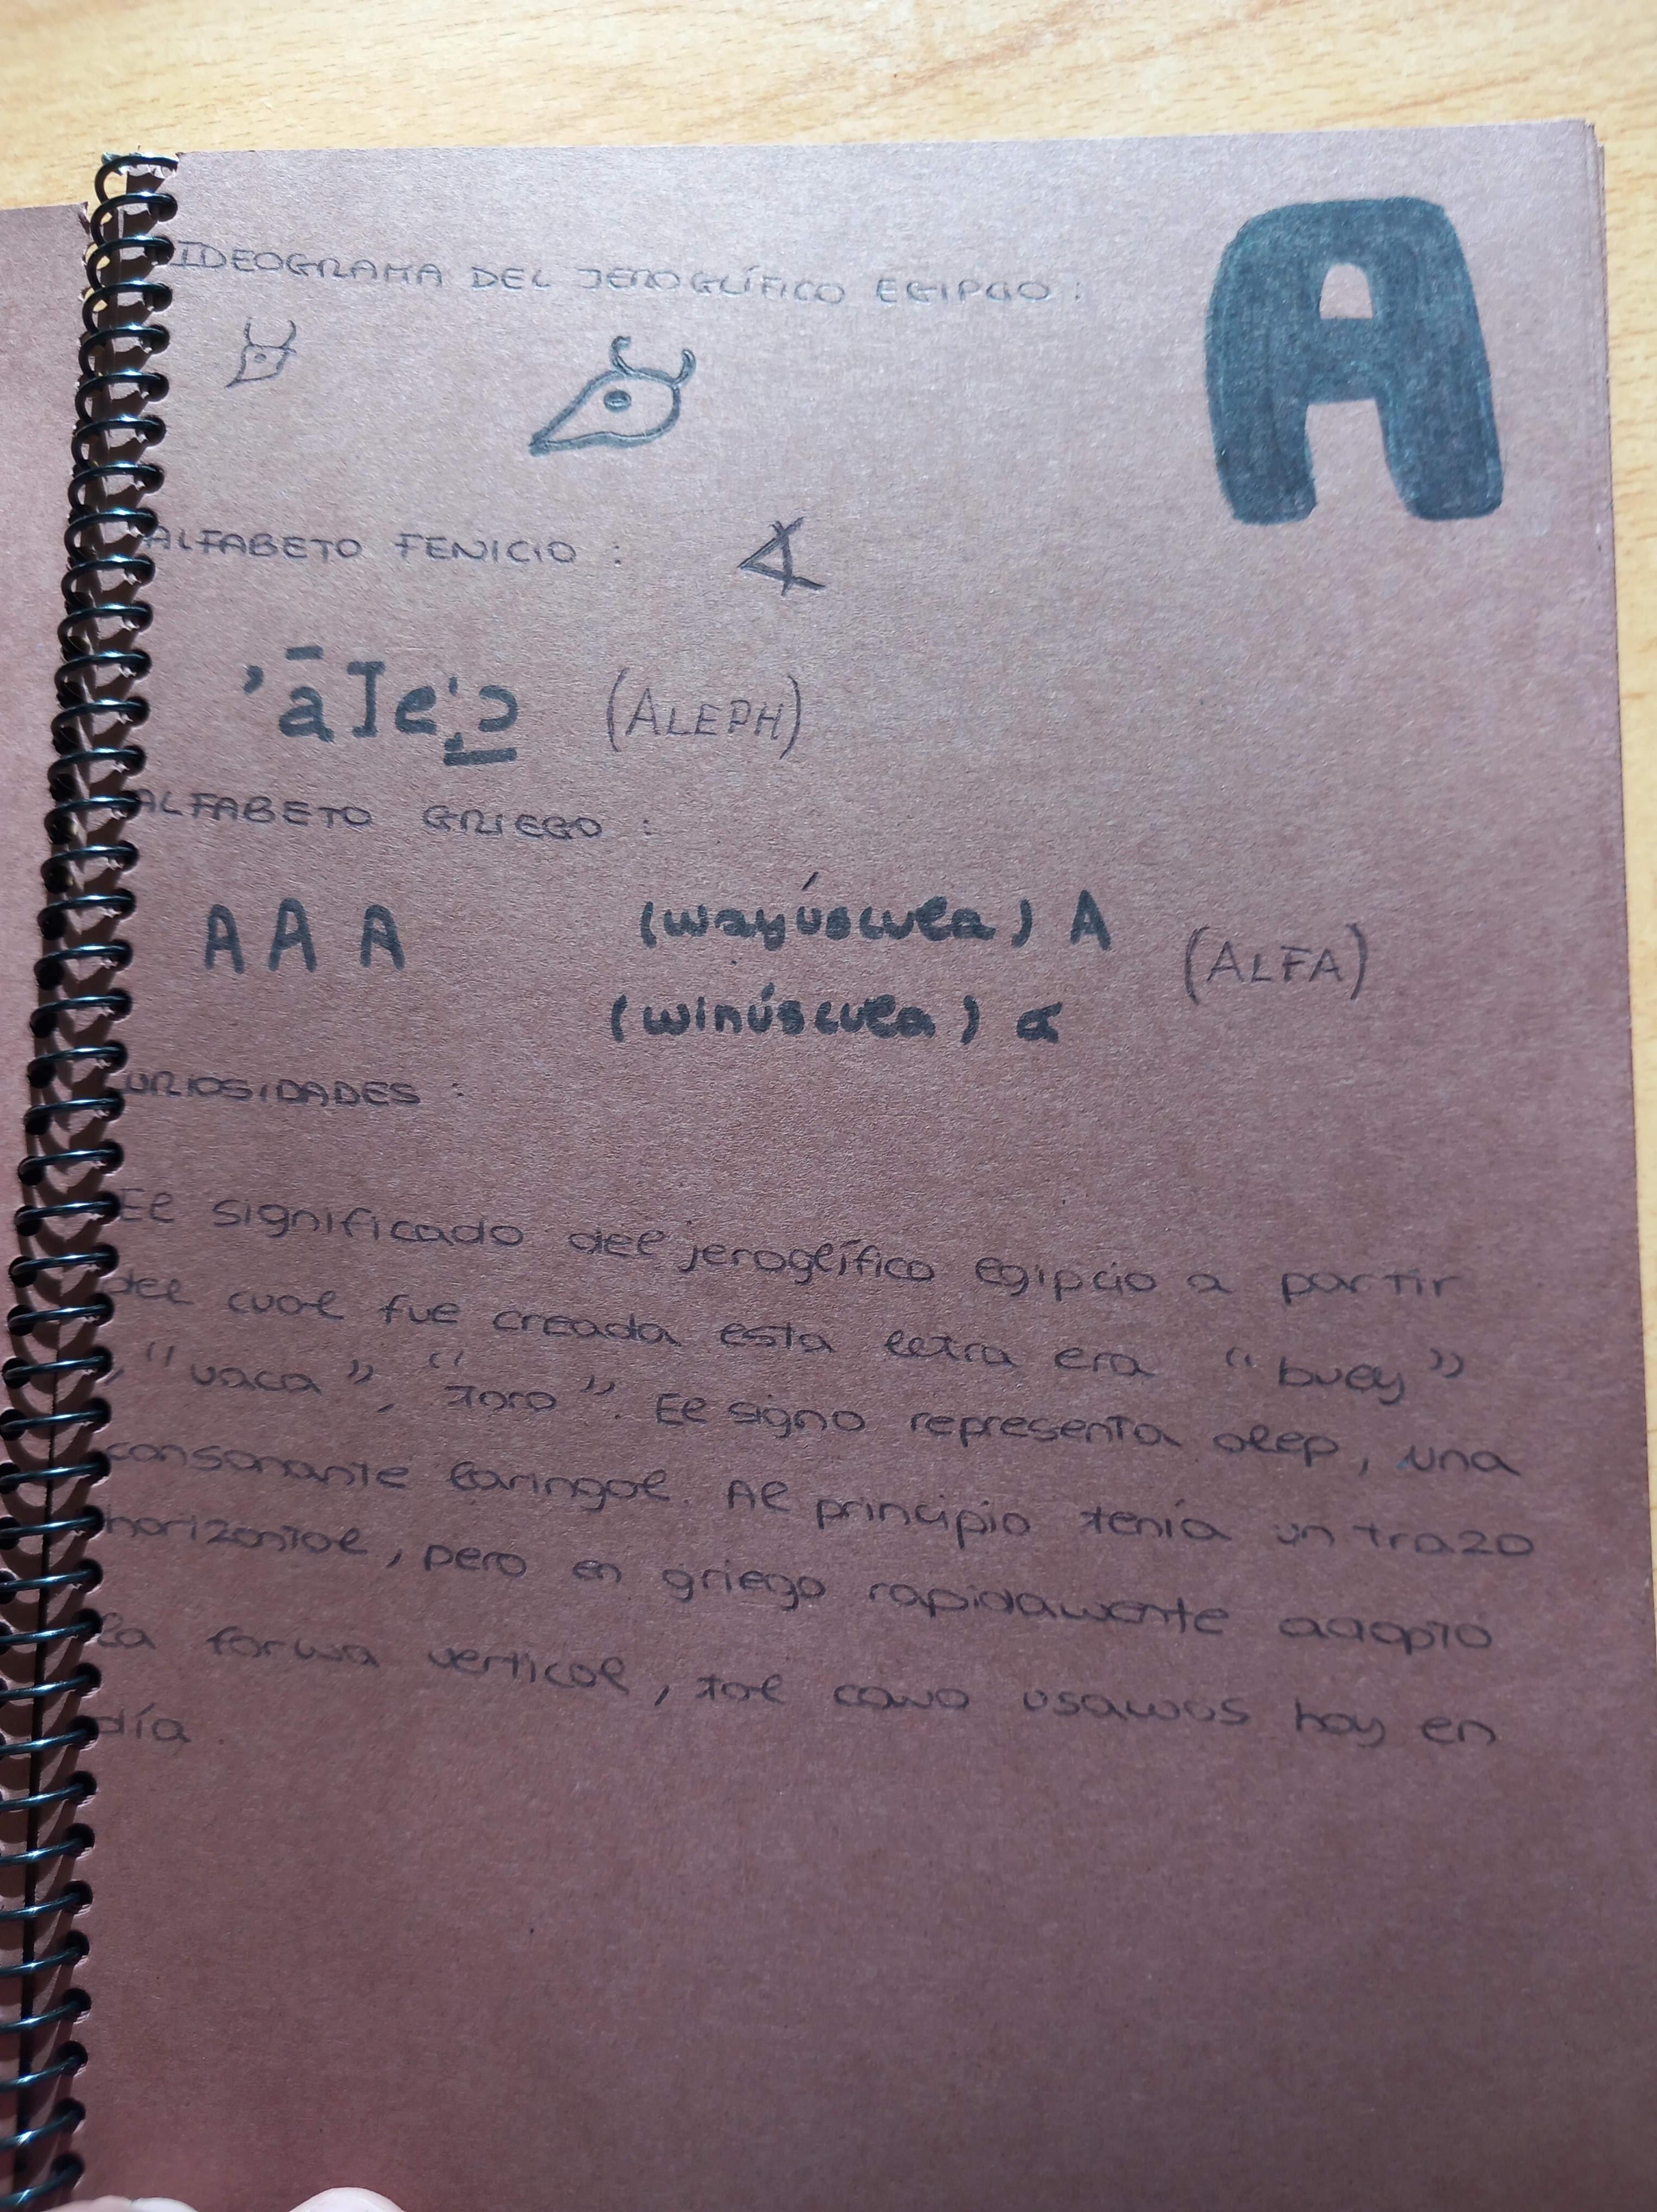 A
IDEOGRAMA DEL JEROGLÍFICO EGIPCIO :
ALFABETO FENICIO :
(ALEPH)
ALFABETO GRIEGO :
A A A (mayúscula) A (ALFA)
(minúscula) α
CURIOSIDADES :
El significado del jeroglífico egipcio a partir
del cual fue creada esta letra era "buey"
, "vaca", "toro". El signo representa alep, una
consonante laringal. Al principio tenía un trazo
horizontal, pero en griego rapidamente adoptó
la forma vertical, tal como usamos hoy en
día.